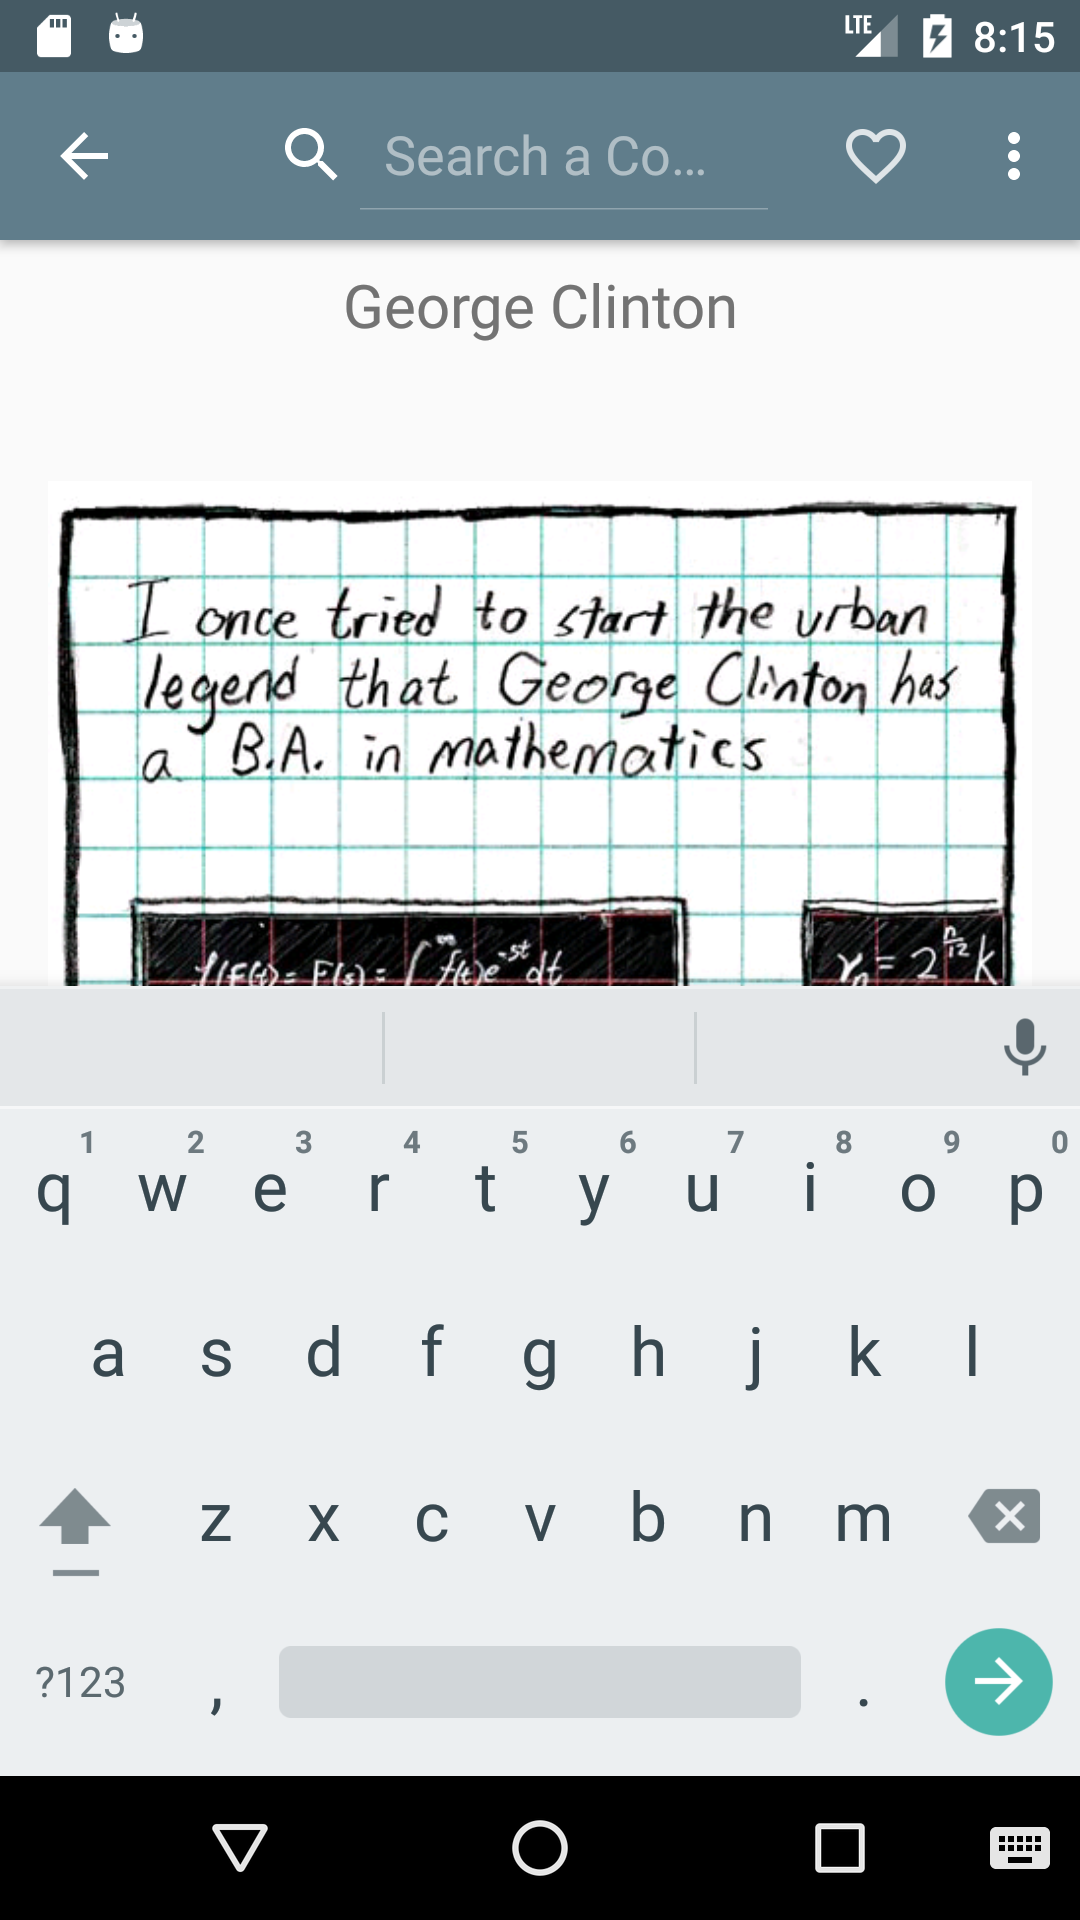 LTE 8:15
Search a Co...
George Clinton
I once tried to start the urban
legend that George Clinton has
a B.A. in mathematics
F(s) = ∫ f(t)e^-st dt
= 2^n/12 k
1 2 3 4 5 6 7 8 9 0
q w e r t y u i o p
a s d f g h j k l
z x c v b n m
?123 , .